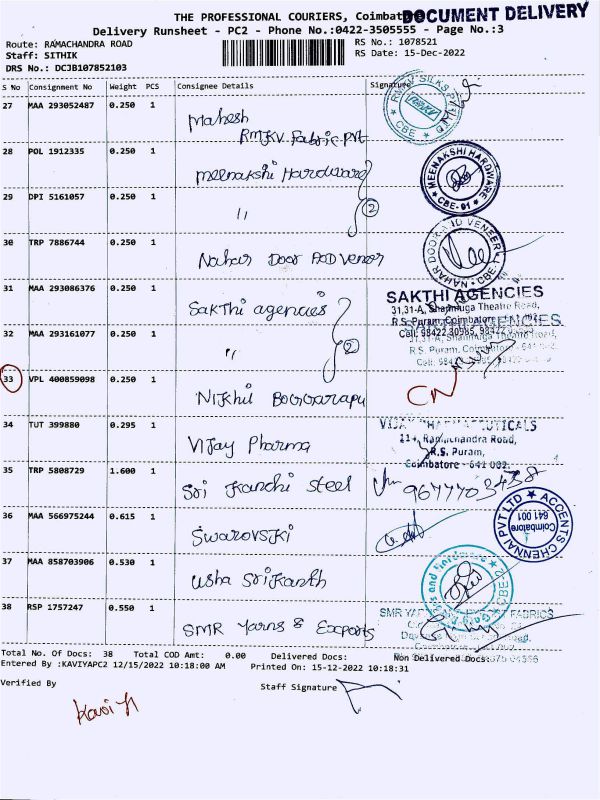 THE PROFESSIONAL COURIERS, Coimbatore
DOCUMENT DELIVERY
Delivery Runsheet - PC2 - Phone No.:0422-3505555 - Page No.:3
Route: RAMACHANDRA ROAD
RS No.: 1078521
Staff: SITHIK
RS Date: 15-Dec-2022
DRS No.: DCJB107852103
S No Consignment No Weight PCS Consignee Details Signature
27 MAA 293052487 0.250 1
Mahesh
RMKV Fabric Pvt
28 POL 1912335 0.250 1
Meenakshi Hardware
MEENAKSHI HARDWARE
CBE-01
29 DPI 5161057 0.250 1
" 2
30 TRP 7886744 0.250 1
Nahar Door AND Vener
31 MAA 293086376 0.250 1
Sakthi agencies
SAKTHI AGENCIES
31,31-A, Shanmuga Theatre Road,
R.S. Puram, Coimbatore
Cell: 98422 30985
32 MAA 293161077 0.250 1
" 2
33 VPL 400859098 0.250 1
Nikhil
CN
34 TUT 399880 0.295 1
Vijay Pharma
Ramachandra Road,
R.S. Puram,
Coimbatore - 641 002.
35 TRP 5808729 1.600 1
Sri Kanchi Steel
36 MAA 566975244 0.615 1
Swarovski
ACCENTS CHENNAI PVT LTD
Coimbatore
641 001
37 MAA 858703906 0.530 1
Usha Srikanth
38 RSP 1757247 0.550 1
SMR Yarns & Exports
Total No. Of Docs: 38 Total COD Amt: 0.00 Delivered Docs: Non Delivered Docs:
Entered By :KAVIYAPC2 12/15/2022 10:18:00 AM Printed On: 15-12-2022 10:18:31
Verified By
Staff Signature